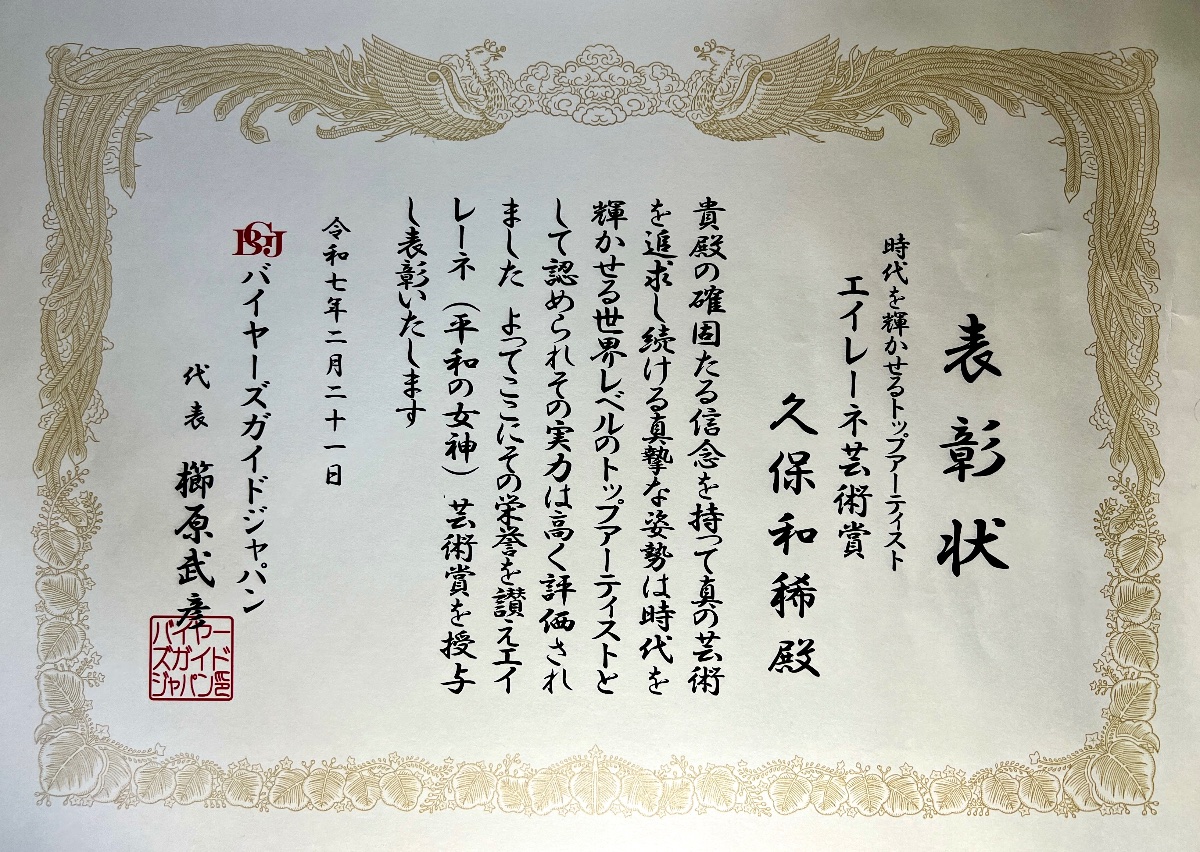 表彰状
時代を輝かせるトップアーティスト
エイレーネ芸術賞
久保和稀殿
貴殿の確固たる信念を持って真の芸術
を追求し続ける真摯な姿勢は時代を
輝かせる世界レベルのトップアーティストと
して認められその実力は高く評価され
ました よってここにその栄誉を讃えエイ
レーネ（平和の女神）芸術賞を授与
し表彰いたします
令和七年二月二十一日
BGJ バイヤーズガイドジャパン
代表 櫛原武彦
バイヤー
ズガイド
ジャパン印